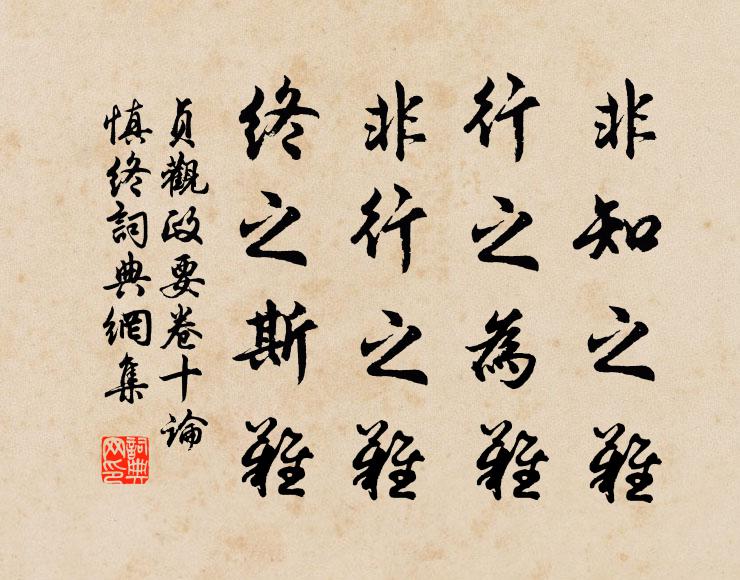 非知之難
行之為難
非行之難
終之斯難
貞觀政要卷十論
慎終詞典網集
詞典網印